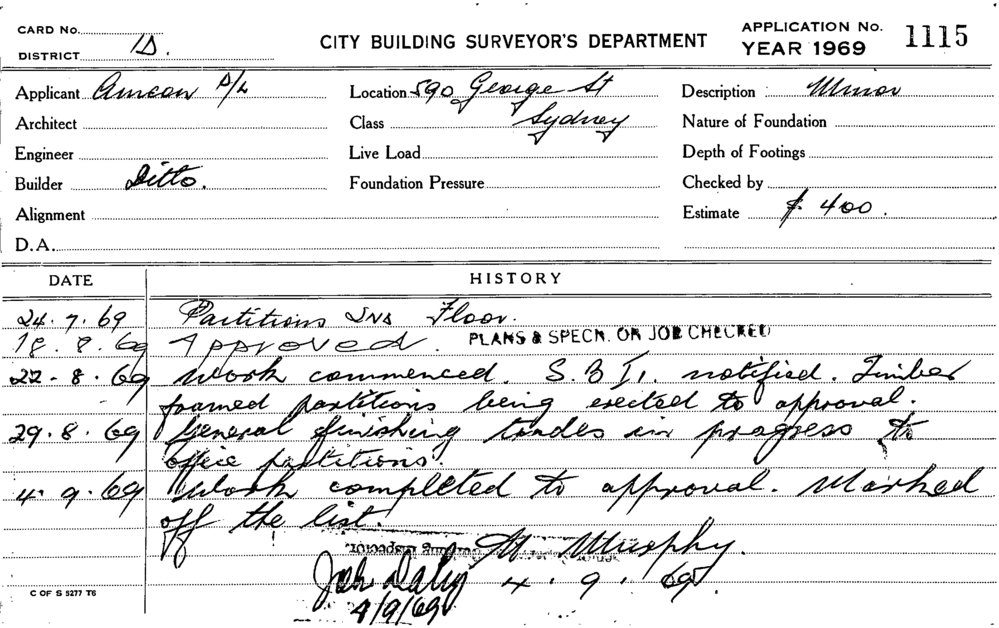 CARD No.
DISTRICT 1D.
CITY BUILDING SURVEYOR'S DEPARTMENT
APPLICATION No. 1115
YEAR 1969
Applicant P/L
Location 590 George St
Description Minor
Architect
Class Sydney
Nature of Foundation
Engineer
Live Load
Depth of Footings
Builder Ditto.
Foundation Pressure
Checked by
Alignment
Estimate $ 400.
D.A.
DATE HISTORY
24.7.69 Partitions Floor.
18.8.69 Approved. PLANS & SPECN. ON JOB CHECKED
22-8.69 Work commenced. S.B.I. notified. Timber
framed partitions being erected to approval.
29.8.69 General finishing trades in progress to
office partitions.
4.9.69 Work completed to approval. Marked
off the list.
Murphy.
4.9.69
4/9/69
C OF S 5277 T6